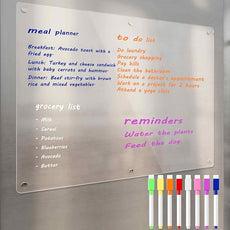 meal planner
Breakfast: Avocado toast with a
fried egg
Lunch: Turkey and cheese sandwich
with baby carrots and hummus
Dinner: Beef stir-fry with brown
rice and mixed vegetables
to do list
Do laundry
Grocery shopping
Pay bills
Clean the bathroom
Schedule a doctor's appointment
Work on a project for 2 hours
Attend a yoga class
grocery list
• Milk
• Cereal
• Potatoes
• Blueberries
• Avocado
• Butter
reminders
Water the plants
Feed the dog